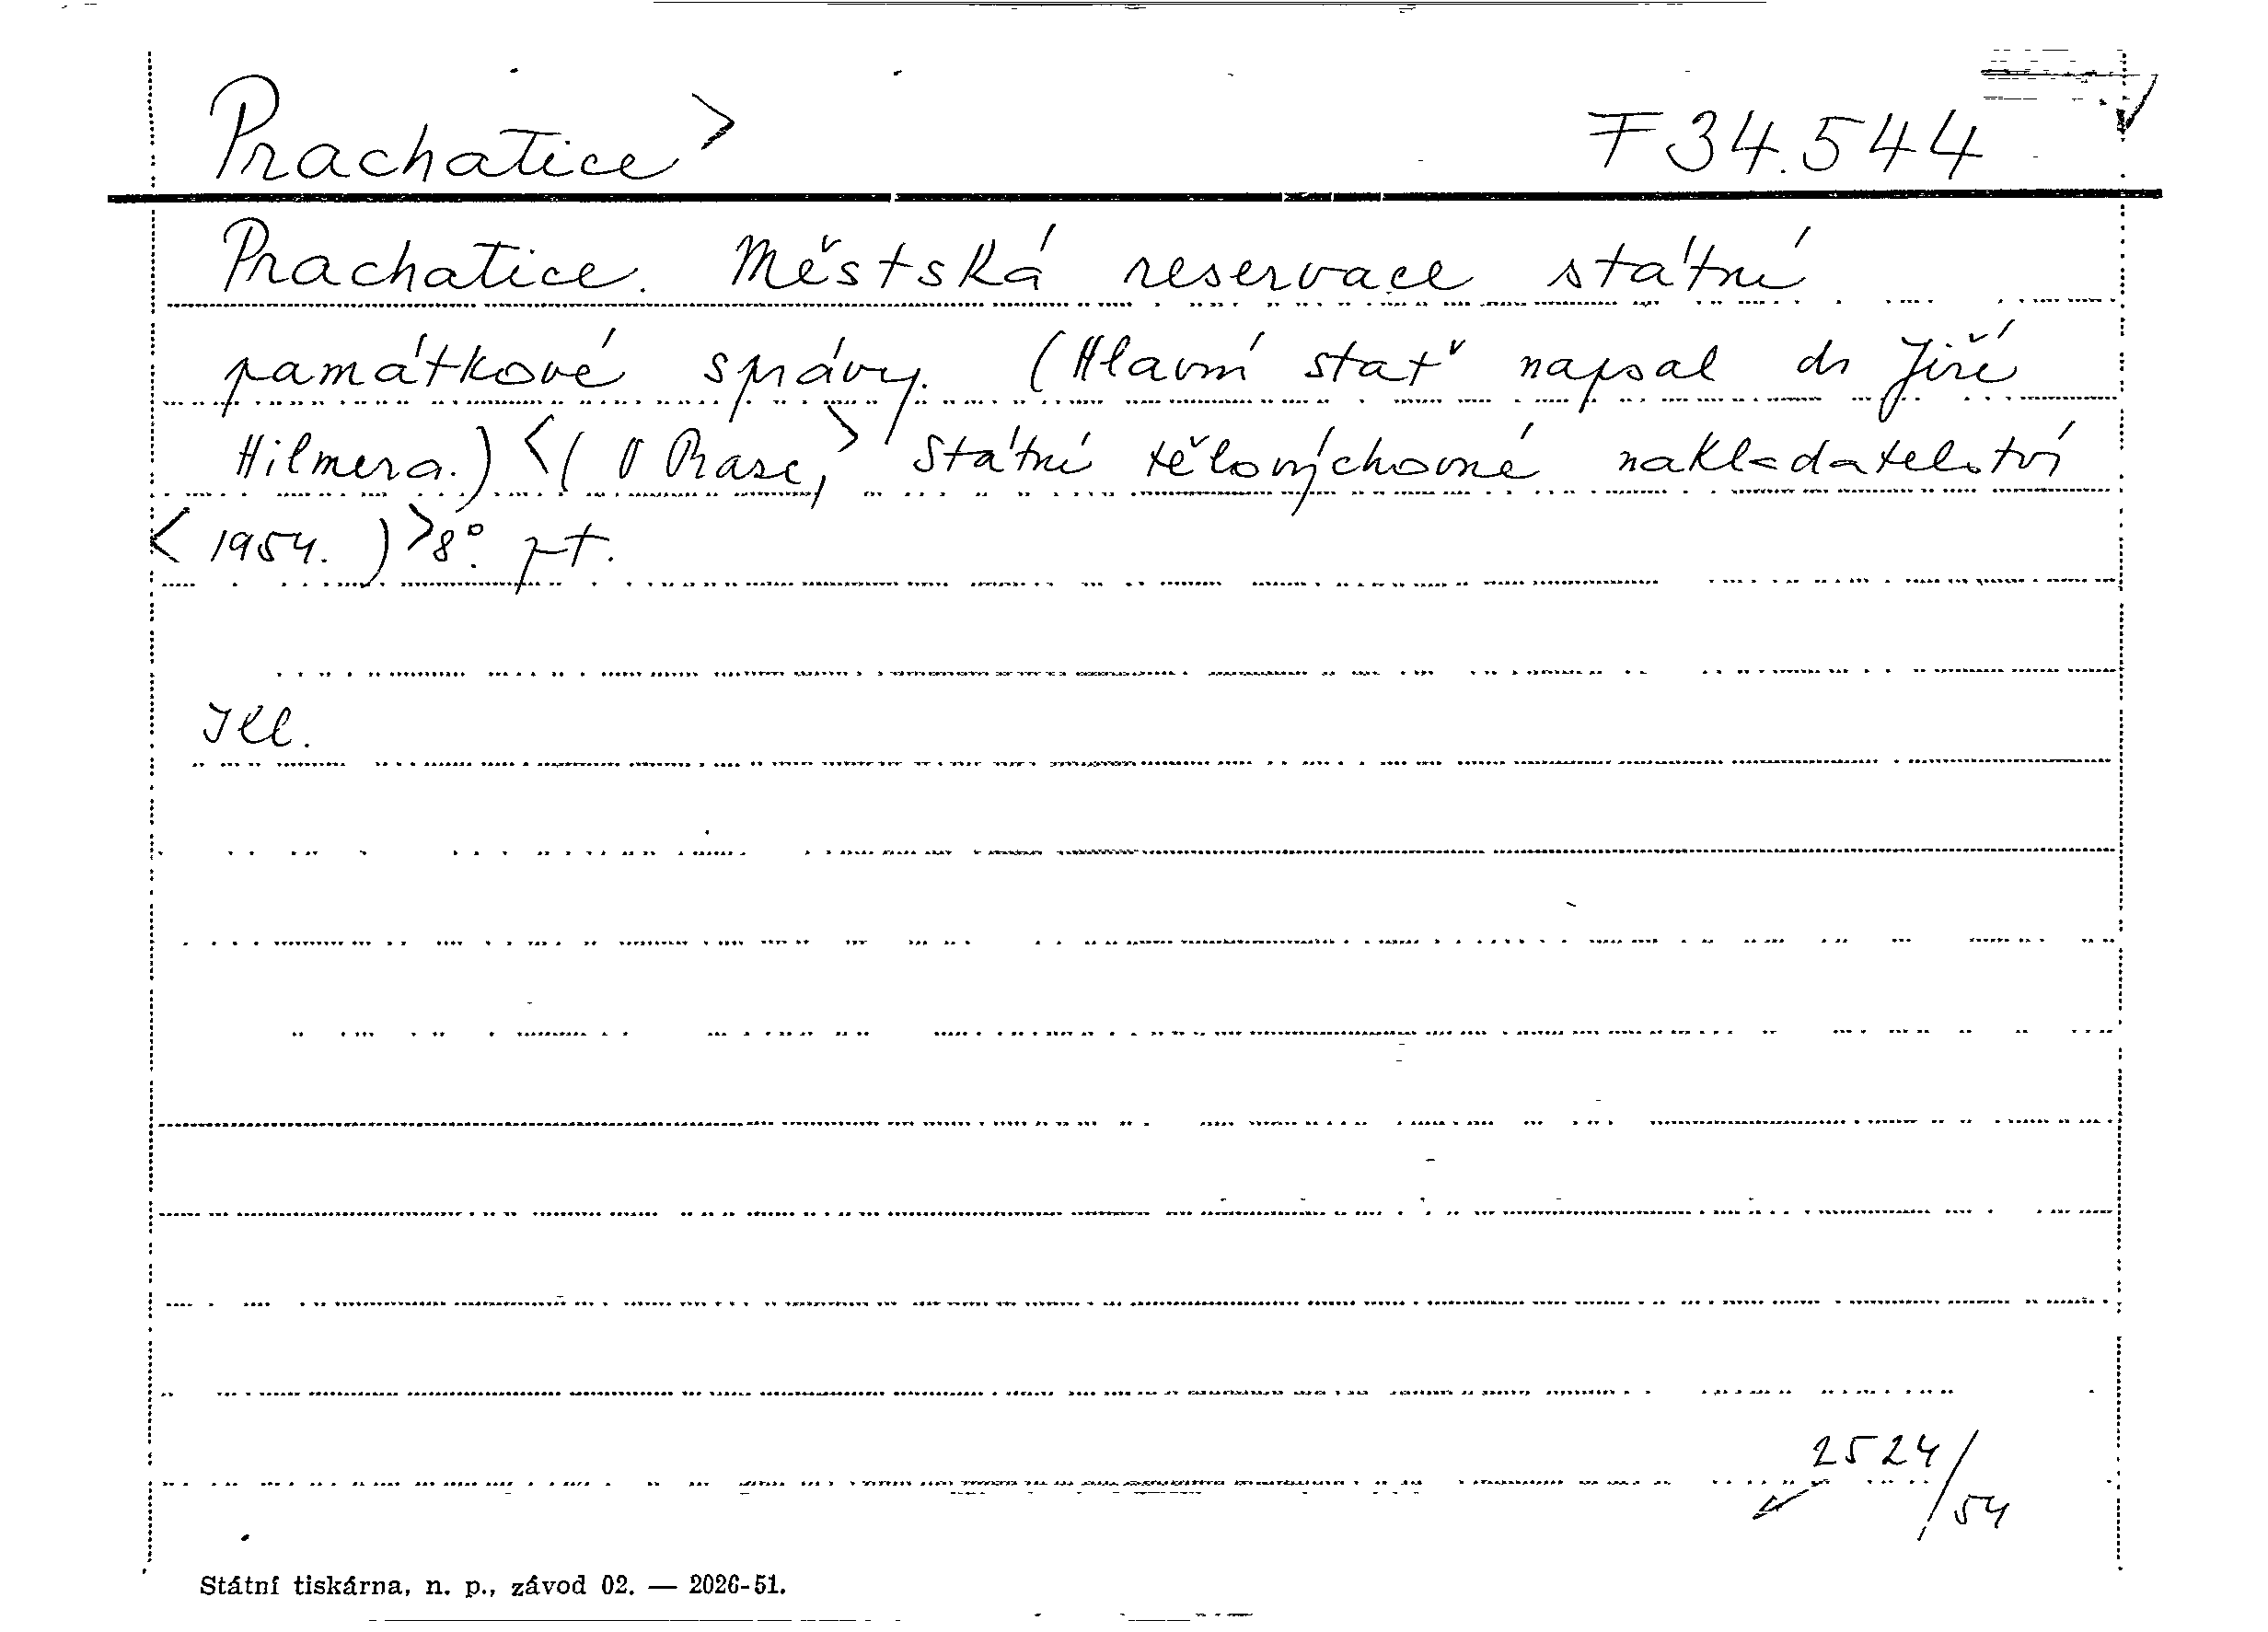 Prachatice > F 34.544
Prachatice. Městská reservace státní
památkové správy. (Hlavní stať napsal dr Jiří
Hilmera.) < ( V Praze, > Státní tělovýchovné nakladatelství
< 1954. ) > 8°. pt.
Ill.
2524/54
Státní tiskárna, n. p., závod 02. — 2026-51.